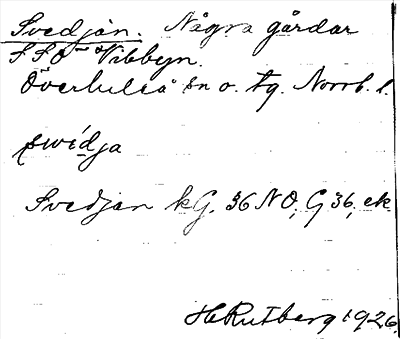 Svedjan. Några gårdar
SSO Vibbyn.
Överluleå sn o. tg. Norrb. l.
swidja
Svedjan kG. 36 NO, G 36, ek
H Rutberg 1926.